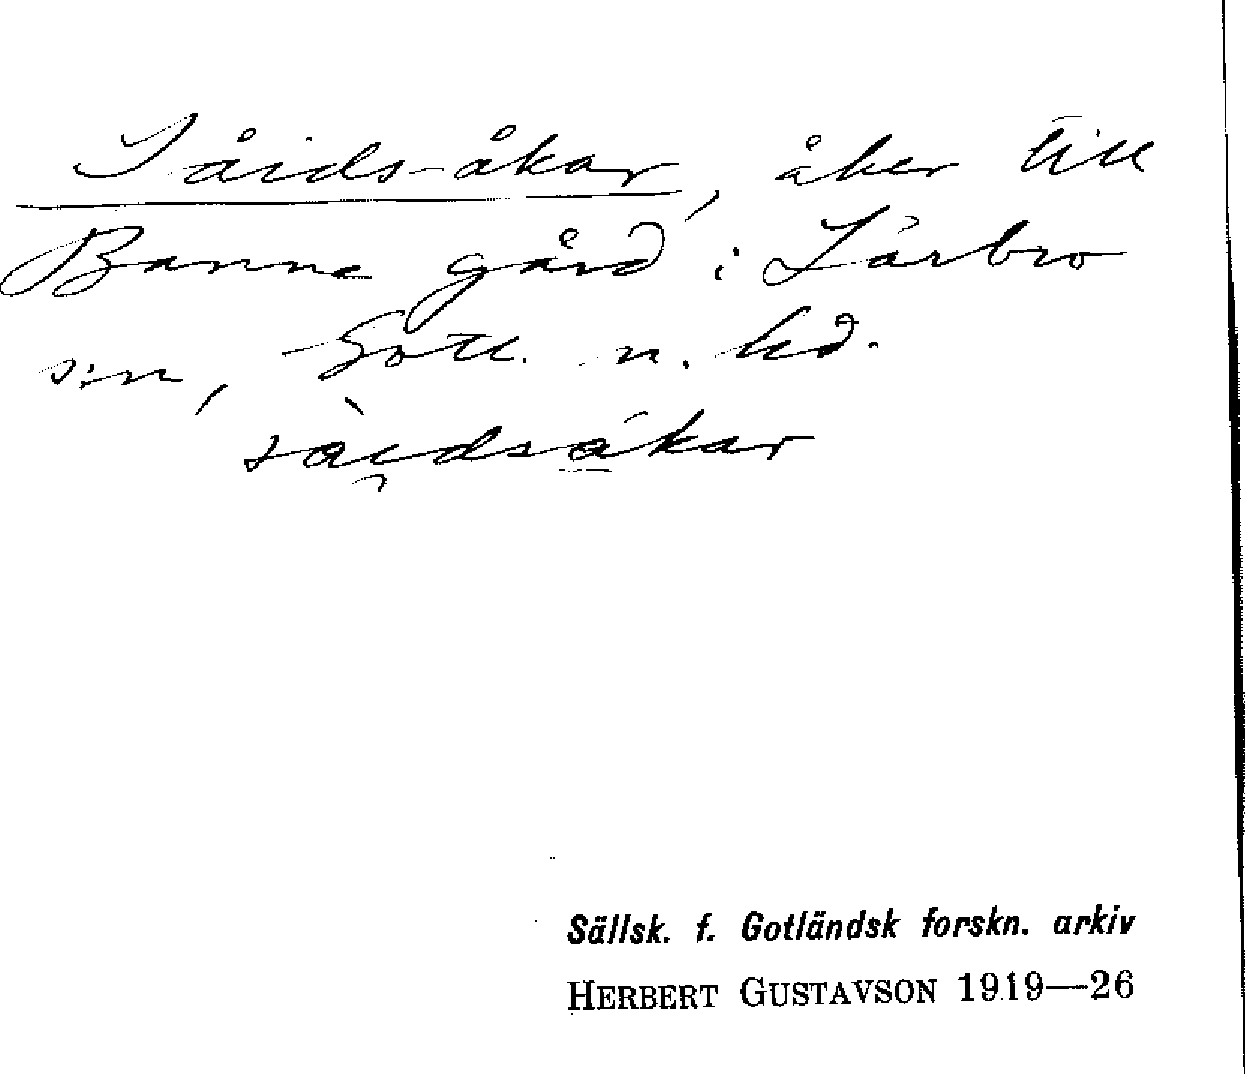 Såids-åkar, åker till
Banne gård i Lärbro
sn, Gotl. n. hd.
sàịdsákar
Sällsk. f. Gotländsk forskn. arkiv
HERBERT GUSTAVSON 1919—26